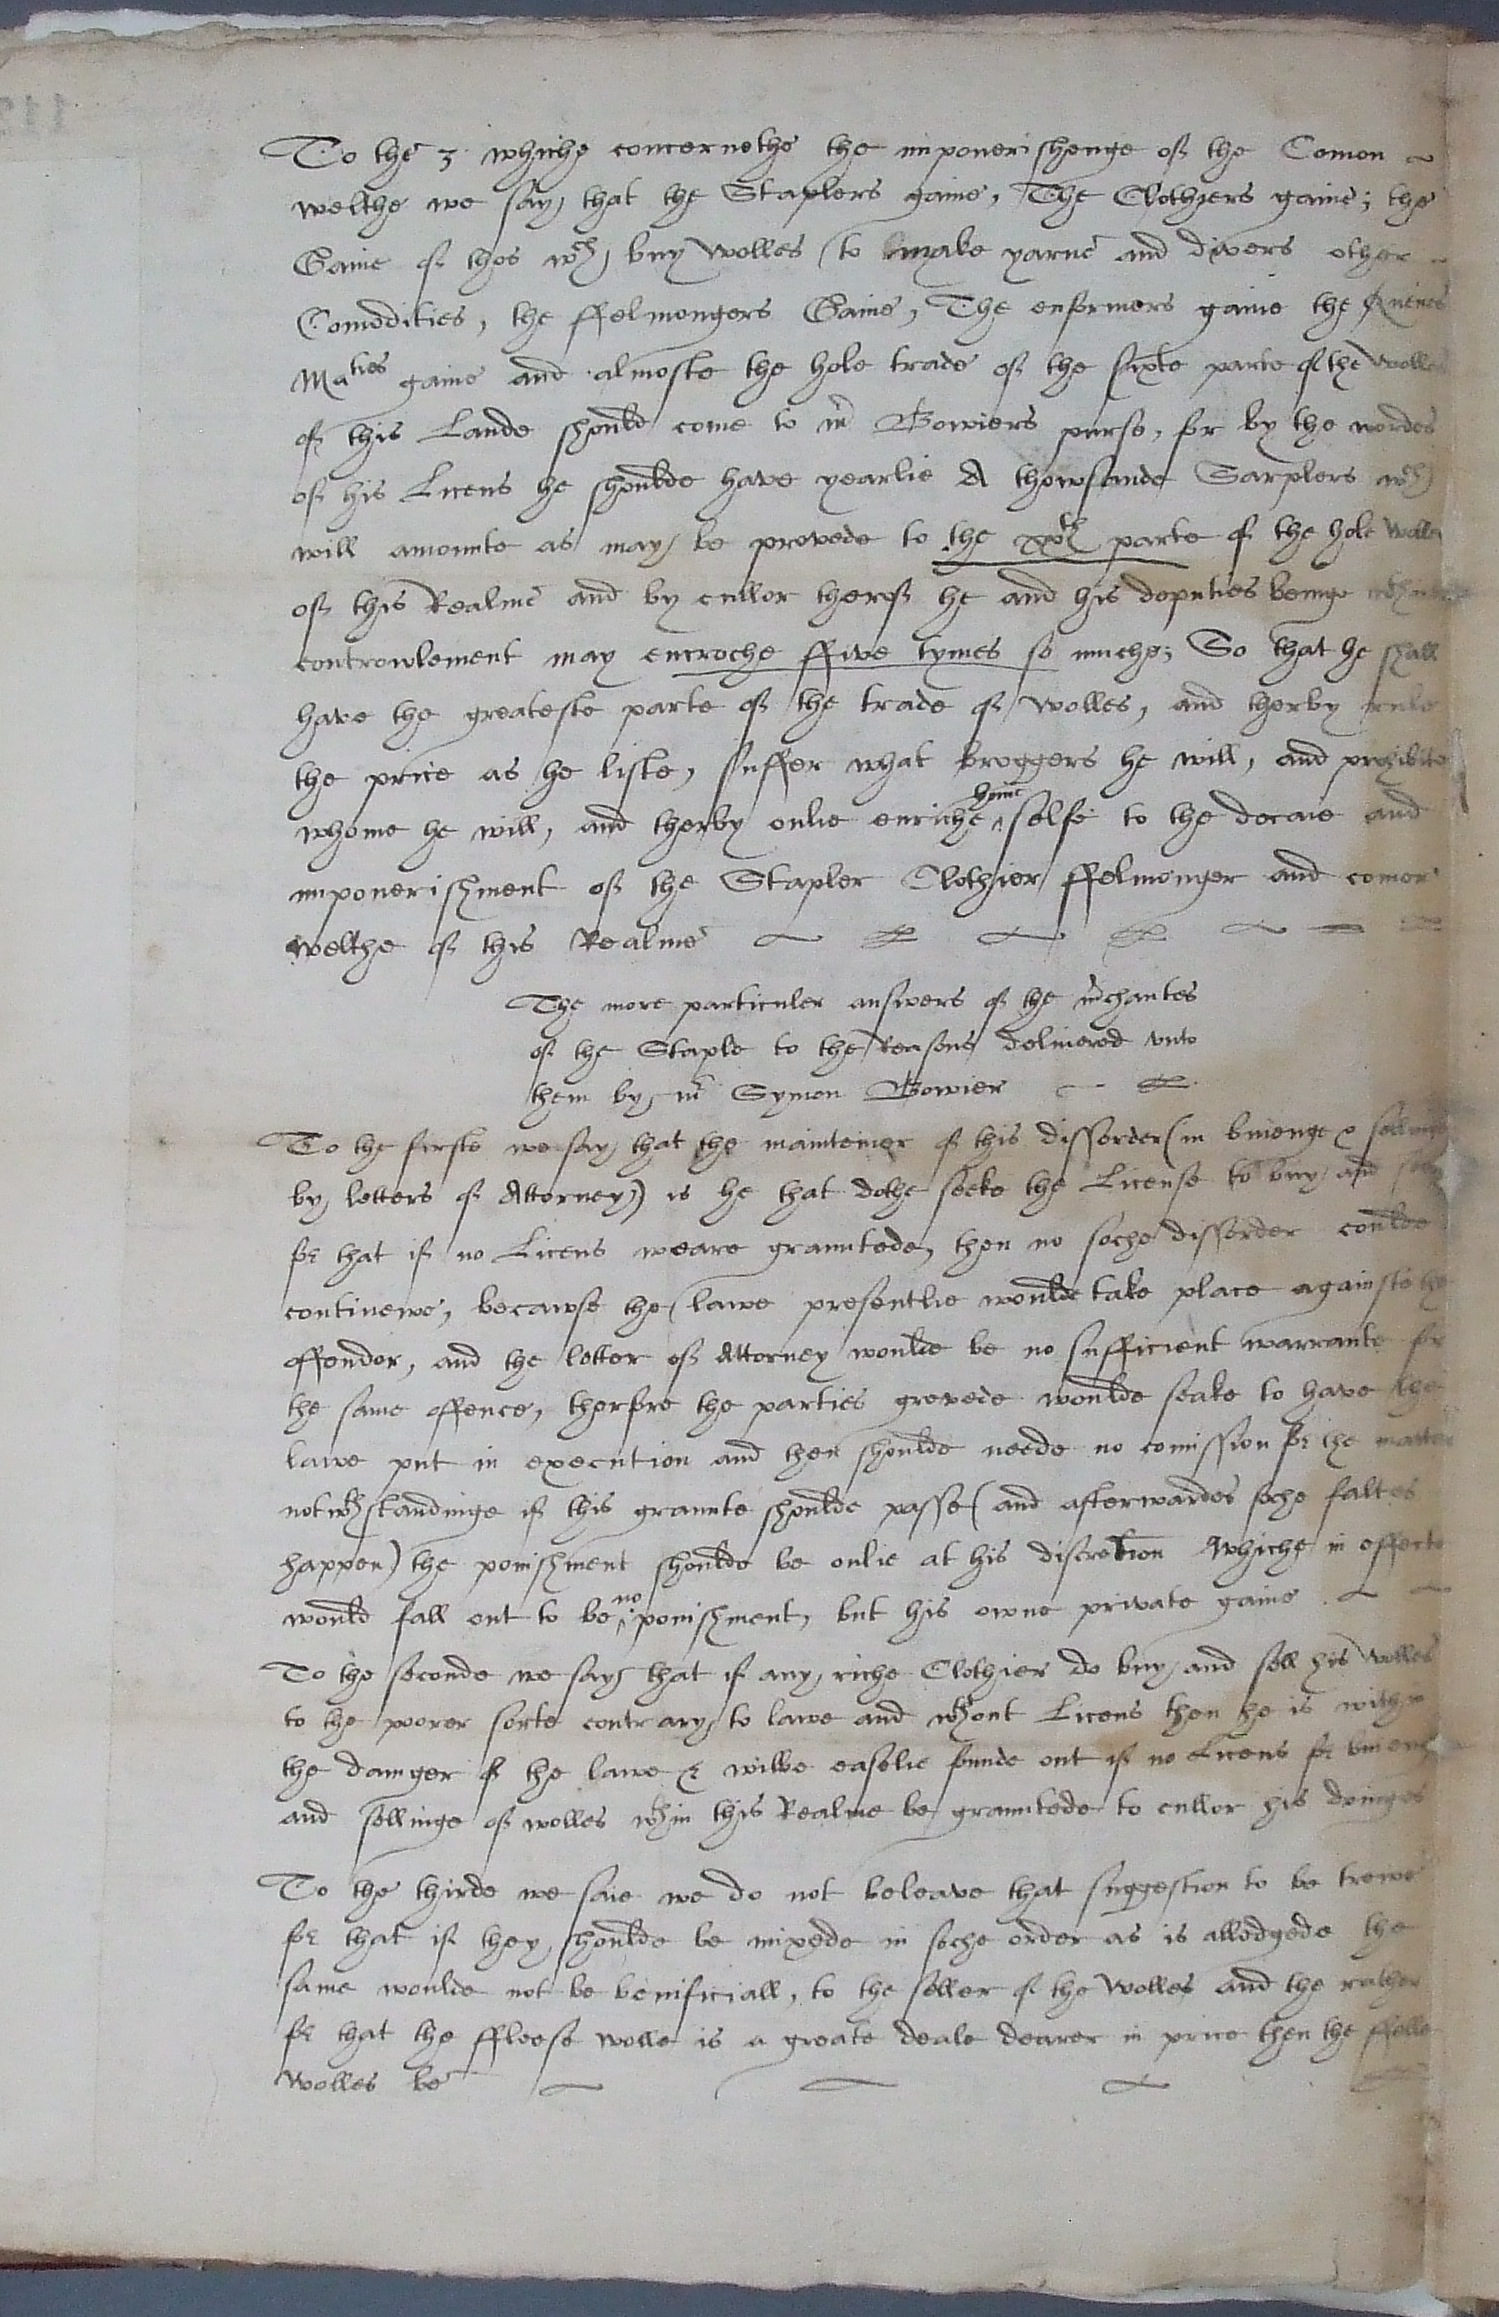 To the 3 whiche concernethe the impouerishenge of the Comon
welthe we say that the Staplers gaine, The Clothiers gaine; the
Gaine of thos wch buy wolles to make yarne and divers other
Comodities, the ffelmongers Gaine, The enformers gaine the Quenes
Maties gaine and almoste the hole trade of the sixte parte of the wolles
of this Lande should come to mr Bowiers purse, for by the wordes
of his Licens he shoulde have yearlie A thowsande Sarplers wch
will amounte as may be provede to the xxvth parte of the hole wolles
of this Realme and by cullor therof he and his deputies beinge wthout
controwlement may encroche ffive tymes so muche; So that he shall
have the greateste parte of the trade of wolles, and therby rule
the price as he liste, suffer what broggers he will, and prohibite
whome he will, and therby onlie enriche hime selfe to the decaie and
impouerishment of the Stapler Clothier ffelmonger and comon
welthe of this Realme
The more particuler answers of the mrchantes
of the Staple to the Reasons delivered vnto
them by mr Symon Bowier
To the firste we say that the mainteiner of this dissorder (in buienge & sellinge
by letters of Attorney) is he that dothe seeke the License to buy and sell
for that if no Licens weare grauntede, then no soche dissorder coulde
continewe, becawse the lawe presentlie woulde take place againste the
offendor, and the letter of Attorney woulde be no sufficient warrante for
the same offence, therfore the parties grevede woulde seake to have the
lawe put in execution and then shoulde neede no comission for the matter
notwthstandinge if this graunte shoulde passe (and afterwardes soche faltes
happen) the ponishment shoulde be onlie at his discretion Whiche in effecte
would fall out to be no ponishment, but his owne private gaine
To the seconde we say that if any riche Clothier do buy and sell his wolles
to the poorer sorte contrary to lawe and wthout Licens then he is within
the daunger of the lawe & wilbe easelie founde out if no Licens for buienge
and sellinge of wolles wthin this Realme be grauntede to cullor his doinges
To the thirde we saie we do not beleave that suggestion to be trewe
for that if they shoulde be mixede in soche order as is alledgede the
same woulde not be benificiall, to the seller of the wolles and the rather
for that the ffleese wolle is a greate deale dearer in price then the ffelle
wolles be